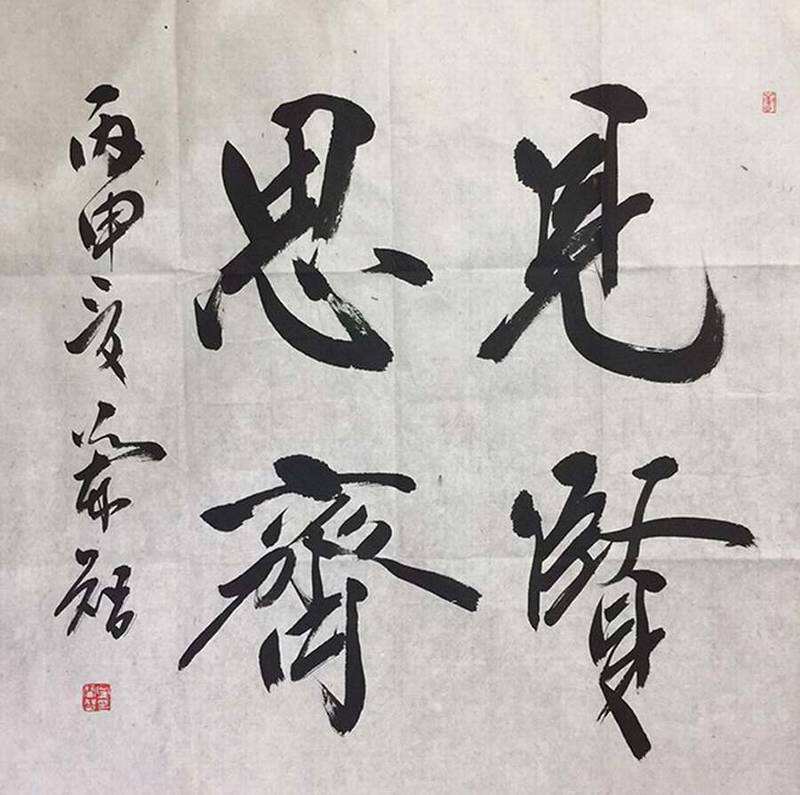 見賢
思齊
丙申夏